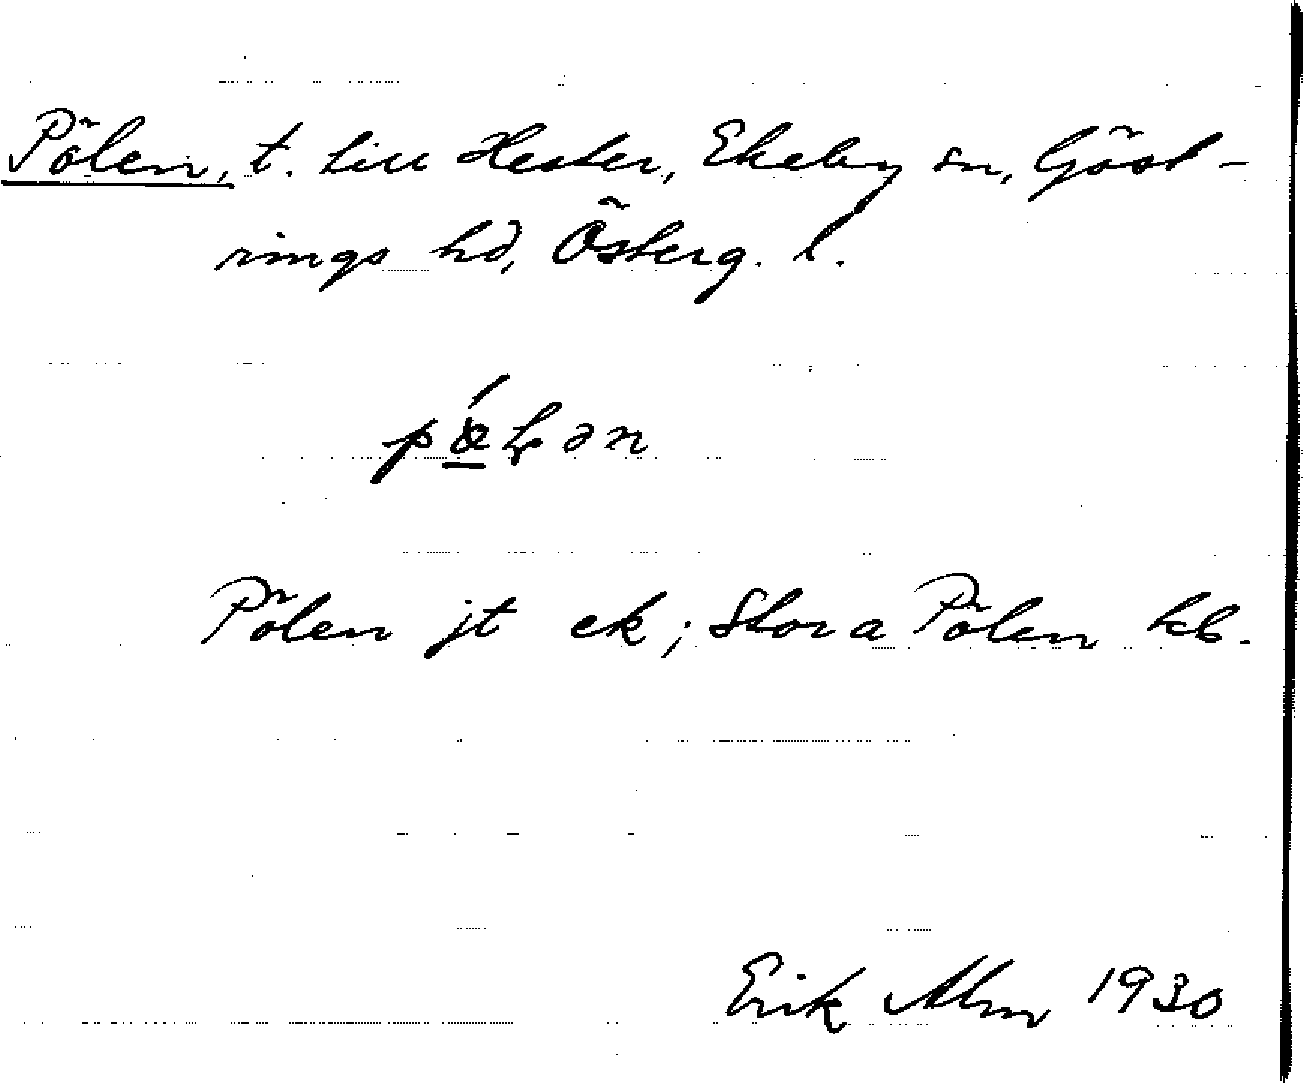 Pölen, t. till Hester, Ekeby sn, Göst-
rings hd, Österg. l.
Pölen jt ek; Stora Pölen kb.
Erik Alm 1930